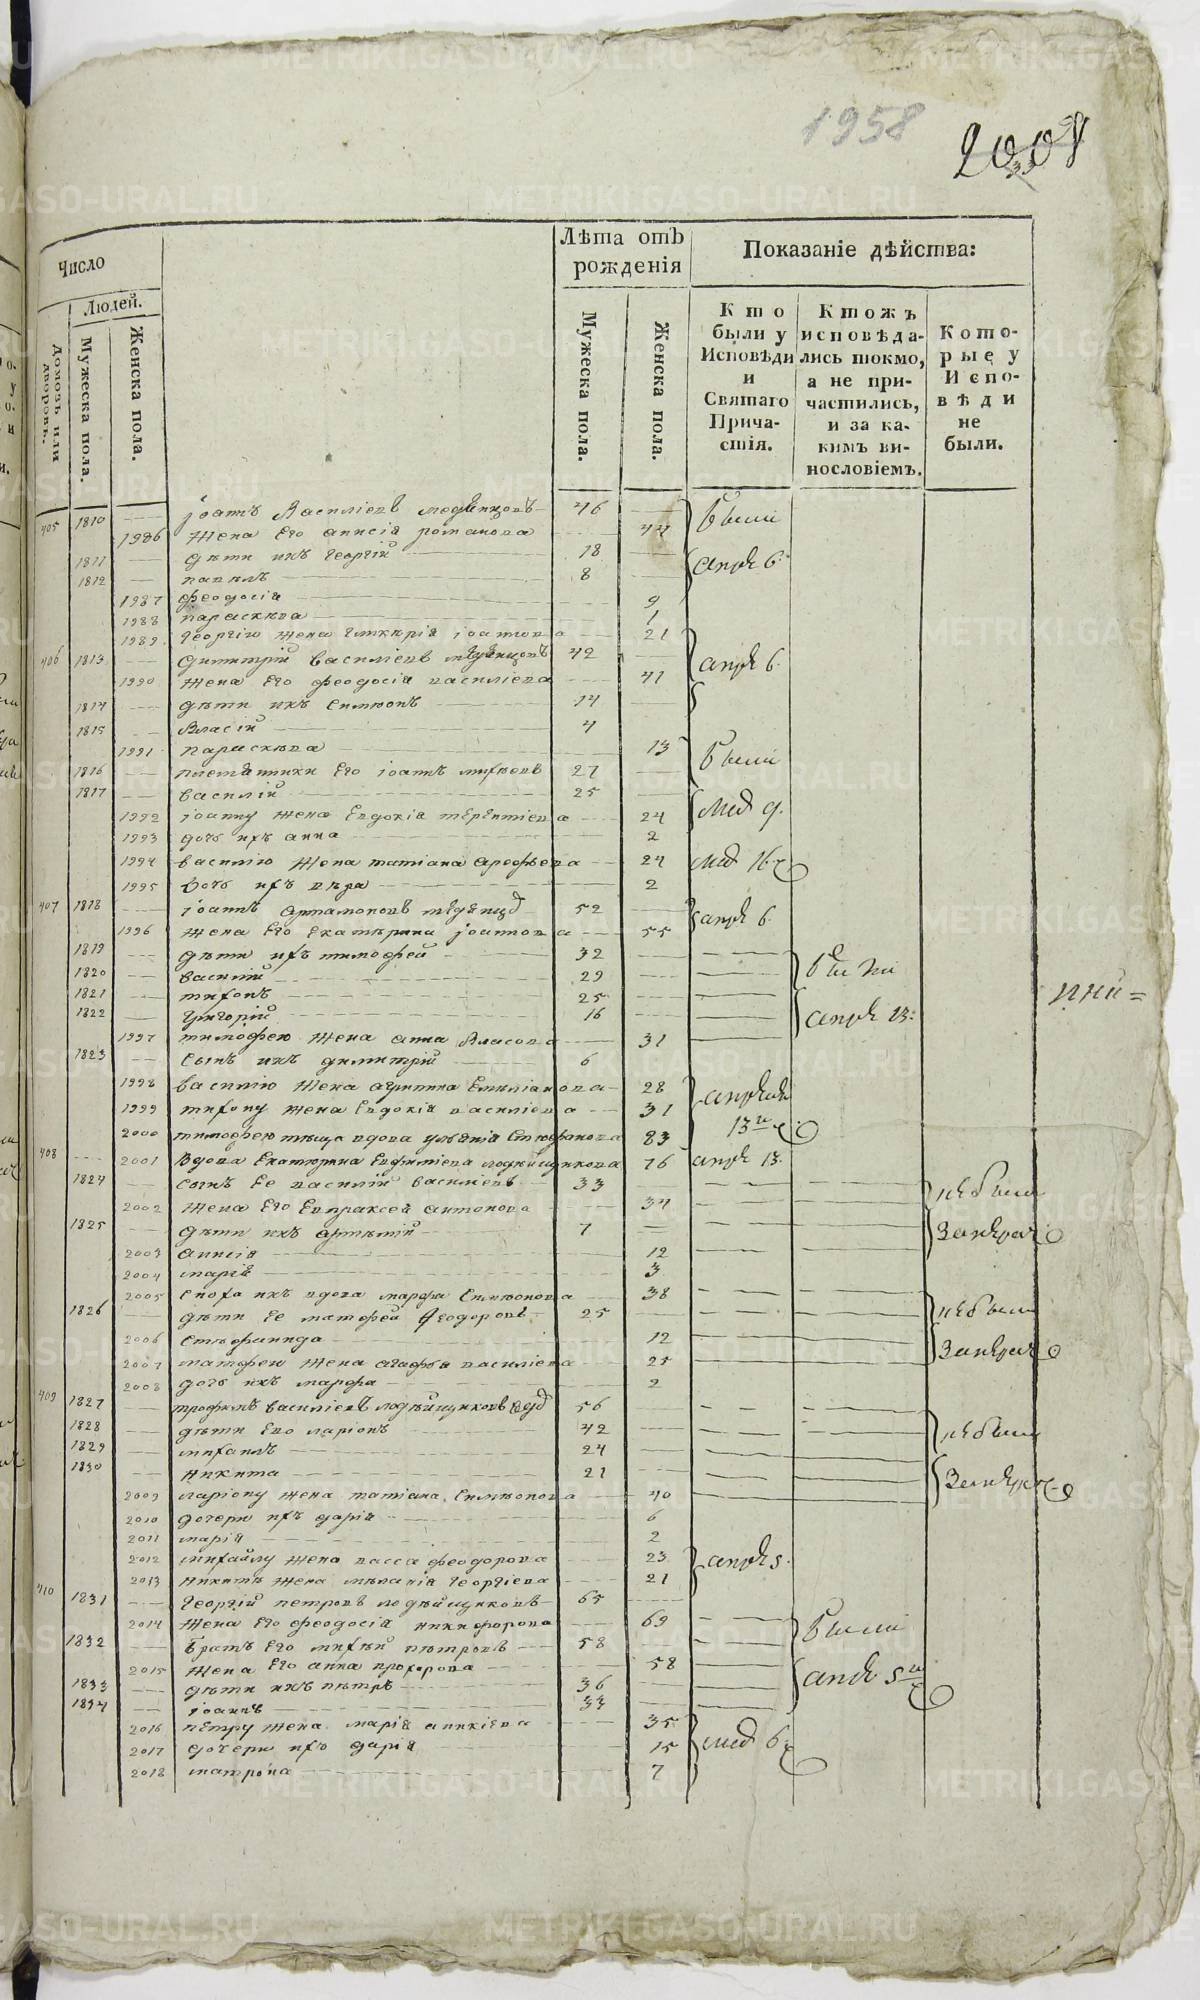 1958
2008
Число
Людей.
Домовъ или дворовъ.
Мужеска пола.
Женска пола.
Лѣта отъ рожденія
Мужеска пола.
Женска пола.
Показаніе дѣйства:
Кто были у Исповѣди и Святаго Причастія.
Ктожъ исповѣдались токмо, а не причастились, и за какимъ винословіемъ.
Которые у Исповѣди не были.
405 1810 Іоаннъ Василіевъ 46 были
1986 Жена Его анисія романова 44
1811 дѣти ихъ Георгій 18 апрѣ 6
1812 павелъ 8
1987 феодосія 9
1988 параскѣва 1
1989 Георгію жена гликѣрія іоаннова 21
406 1813 Димитрій василіевъ 42 апрѣ 6
1990 жена Его феодосія василіева 41
1814 дѣти ихъ Симѣонъ 14
1815 Власій 4
1991 параскѣва 13 были
1816 Его Іоаннъ 27
1817 василій 25
1992 іоанну жена Евдокія терентіева 24 май 9
1993 дочь ихъ анна 2
1994 василію жена татіана арефьева 24 май 16
1995 Дочь ихъ вѣра 2
407 1818 іоаннъ артамоновъ 52 апрѣ 6
1996 жена Его Екатерина іоаннова 55
1819 дѣти ихъ тимофей 32 были
1820 василій 29
1821 тихонъ 25
1822 григорій 16 апрѣ 13
1997 тимофею жена анна Власова 31
1823 сынъ ихъ димитрій 6
1998 василію жена агрипина Емиліанова 28 апрѣля
1999 тихону жена Евдокія василіева 31 13
2000 тимофею теща вдова уліанія Стефанова 83
408 2001 Вдова Екатерина Евфиміева 76 апрѣ 13
1824 сынъ Ее василій василіевъ 33 небыли
2002 жена Его Евпраксея антонова 34
1825 дѣти ихъ артемій 7
2003 анисія 12
2004 марія 3
2005 сноха ихъ вдова марфа Симѣонова 38
1826 дѣти Ее матфей Феодоровъ 25 небыли
2006 12
2007 матфею жена агафья василіева 25
2008 дочь ихъ марфа 2
409 1827 трофимъ василіевъ 56
1828 дѣти Его ларіонъ 42 небыли
1829 михаилъ 24
1830 никита 21
2009 ларіону жена татіана Симѣонова 40
2010 дочери ихъ дарія 6
2011 марія 2
2012 михайлу жена васса феодорова 23 апрѣ 5
2013 никитѣ жена меланія георгіева 21
410 1831 Георгій петровъ 65
2014 жена Его феодосія никифорова 69 были
1832 братъ Его михѣй петровъ 58
2015 жена Его анна прохорова 58
1833 дѣти ихъ петръ 36 апрѣ 5
1834 іоаннъ 33
2016 петру жена марія аникіева 35
2017 дочери ихъ дарія 15 май 6
2018 матрона 7
METRIKI.GASO-URAL.RU